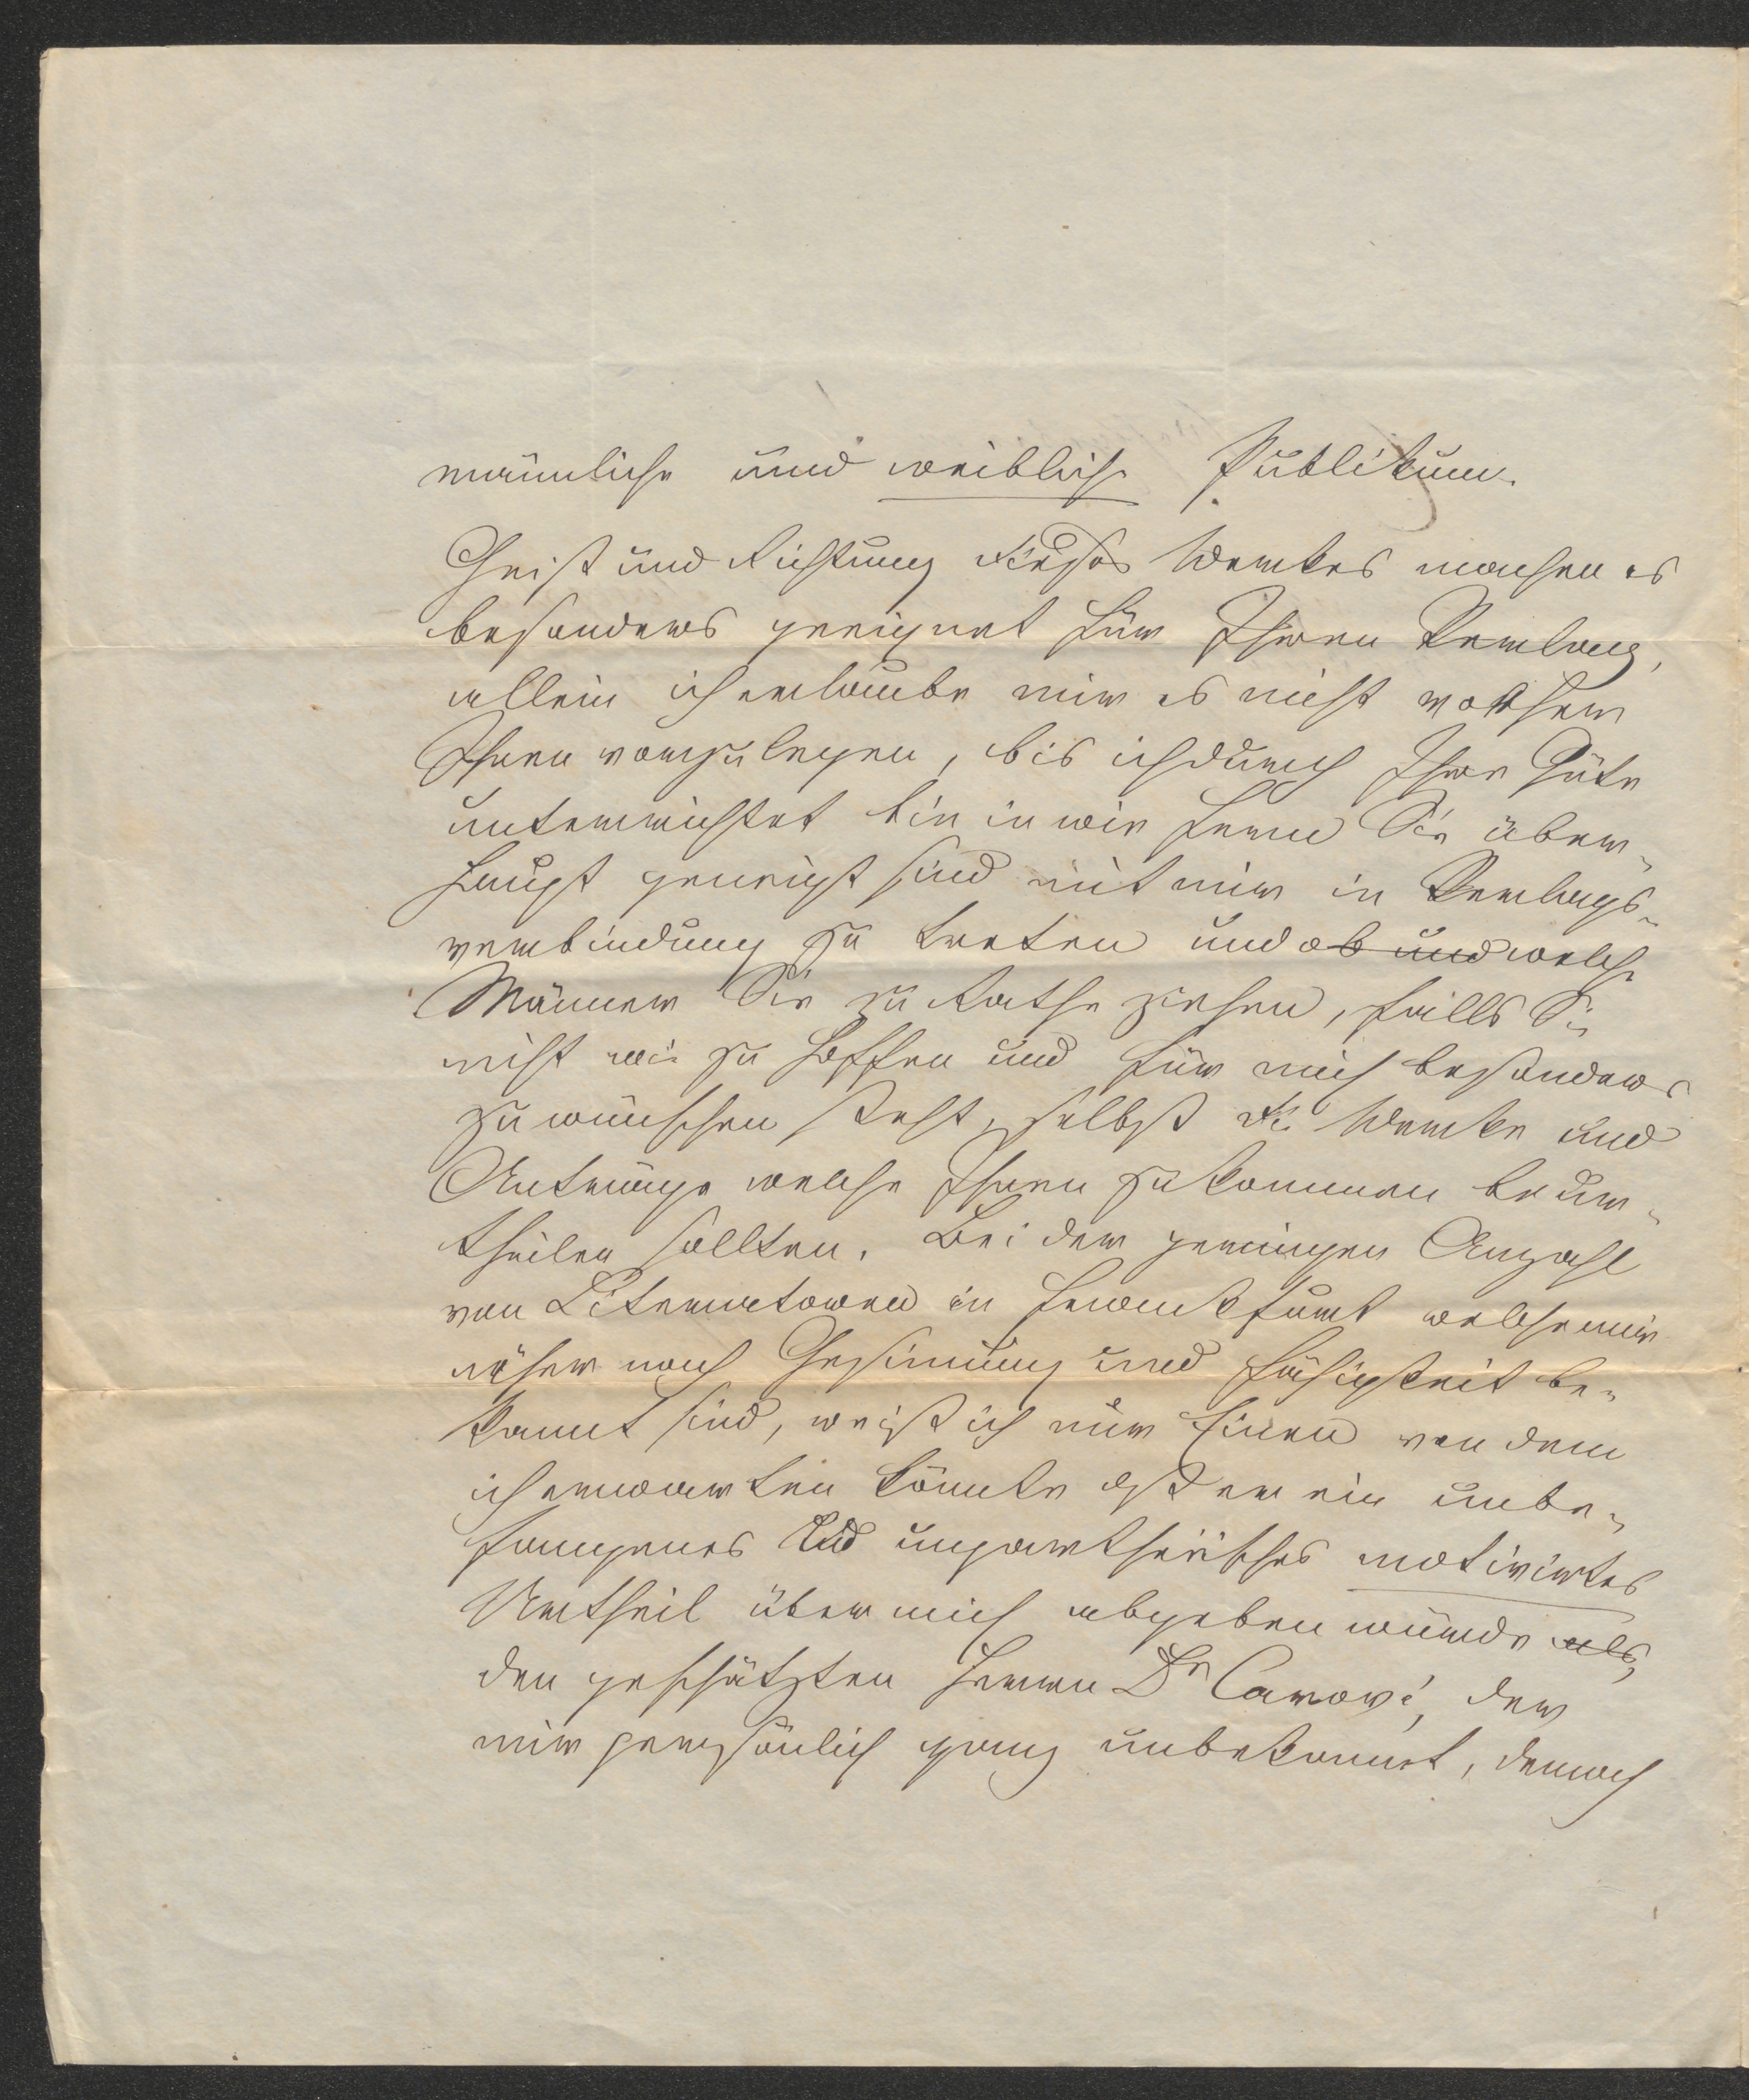 männliche und weibliche Publikum.
Geist und Richtung dieses Werkes machen es
besonders geeignet für Ihren Verlag,
allein ich erlaube mir es nicht vorher
Ihnen vorzulegen, bis ich durch Ihre Güte
unterrichtet bin in wie fern Sie über-
haupt geneigt sind mit mir in Verlags-
verbindung zu treten und ob und welche
Männer Sie zu Rathe ziehen, falls Sie
nicht wie zu hoffen und für mich besonders
zu wünschen steht, selbst die Werke und
Anträge welche Ihnen zukommen beur-
theilen sollten. Bei der geringen Anzahl
von Literatoren in Frankfurt welche mir
näher nach Gesinnung und Fähigkeit be-
kannt sind, weiß ich nur Einen von dem
ich erwarten könnte daß er ein unbe-
fangenes und unpartheiisches motivirtes
Urtheil über mich abgeben würde als,
den geschätzten Herrn Dr Carové, der
mir persönlich ganz unbekannt, dennoch